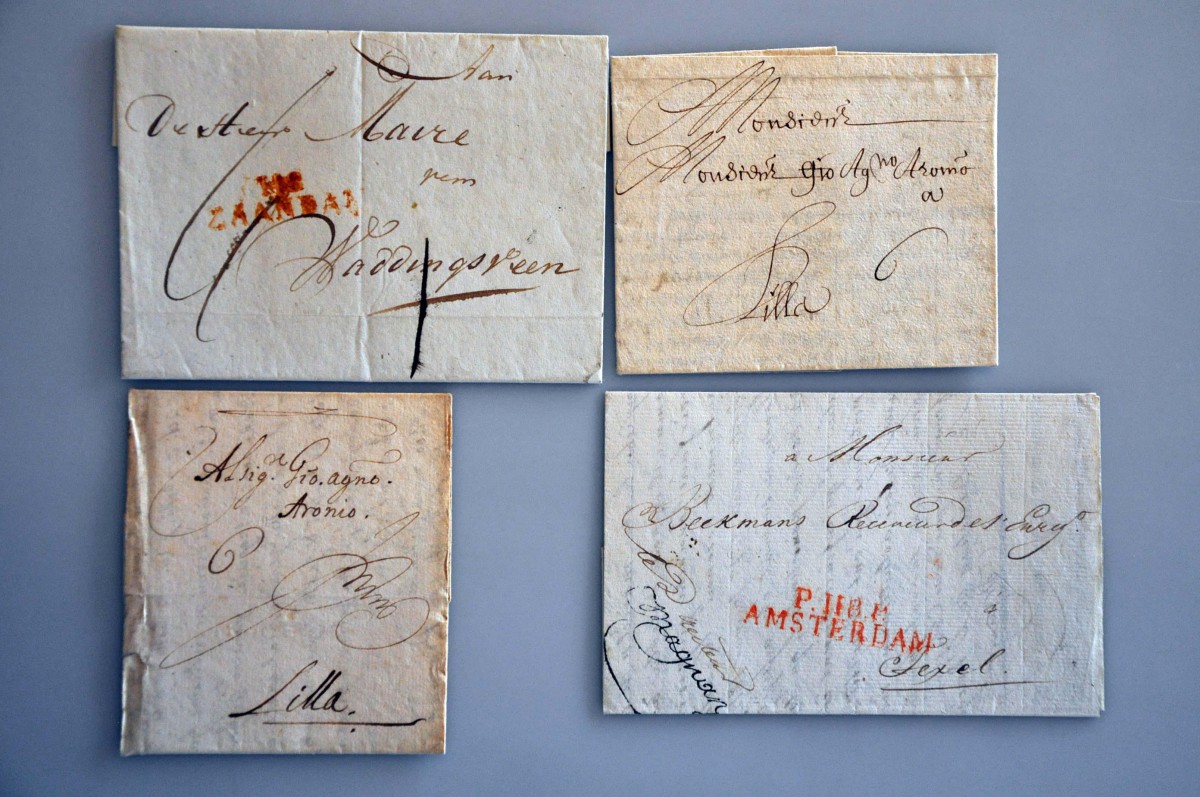 Aan
Maire
van
Waddingsveen
118
ZAANDAM
Monsieur
Monsieur Gio Ag.no Aronio
a
Lilla
6
Al Sig.r Gio. agno.
Aronio.
6
Lilla.
a Monsieur
Beekmans Receveur des Enrg.
P.118.P.
AMSTERDAM
Texel.